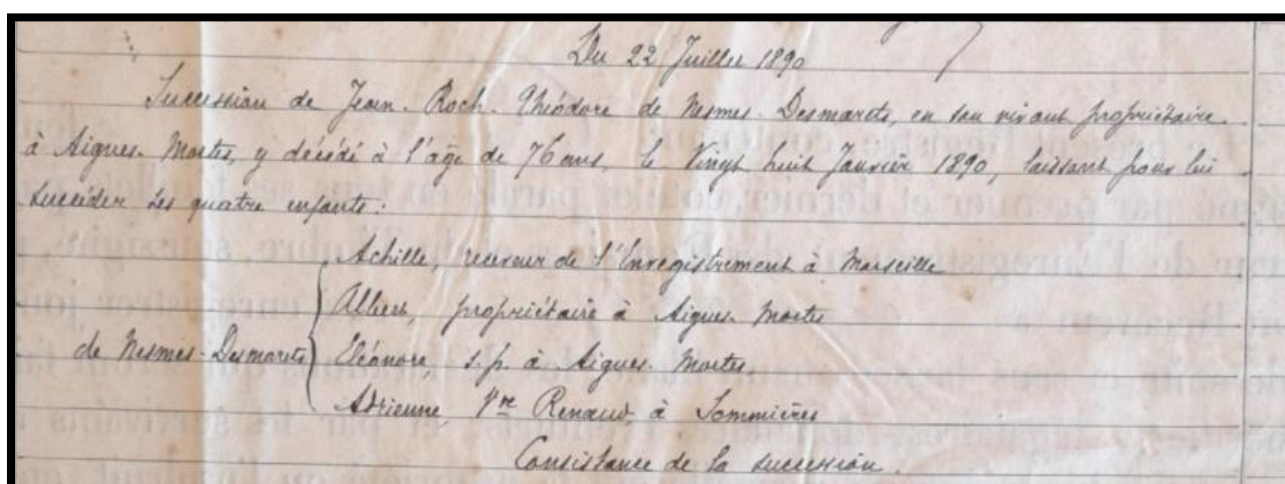 Du 22 Juillet 1890
Succession de Jean-Roch-Théodore de Nesmes-Desmarets, en son vivant propriétaire
à Aigues-Mortes, y décédé à l'âge de 76 ans, le vingt huit Janvier 1890, laissant pour lui
succéder ses quatre enfants:
Achille, receveur de l'Enregistrement à Marseille
Albert, propriétaire à Aigues-Mortes
de Nesmes-Desmarets Eléonore, s.p. à Aigues-Mortes,
Adrienne, Vve Renaud, à Sommières
Consistance de la succession.